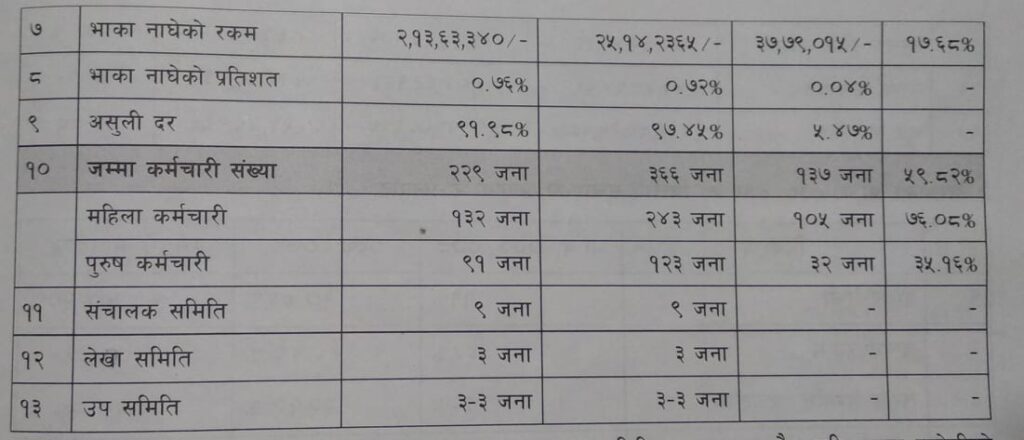 ७ भाका नाघेको रकम २,१३,६३,३४०/- २५,१४,२३६५/- ३७,७९,०१५/- १७.६८%
८ भाका नाघेको प्रतिशत ०.७६% ०.७२% ०.०४% -
९ असुली दर ९१.९८% ९७.४५% ५.४७% -
१० जम्मा कर्मचारी संख्या २२९ जना ३६६ जना १३७ जना ५९.८२%
महिला कर्मचारी १३२ जना २४३ जना १०५ जना ७६.०८%
पुरुष कर्मचारी ९१ जना १२३ जना ३२ जना ३५.१६%
११ संचालक समिति ९ जना ९ जना - -
१२ लेखा समिति ३ जना ३ जना - -
१३ उप समिति ३-३ जना ३-३ जना - -